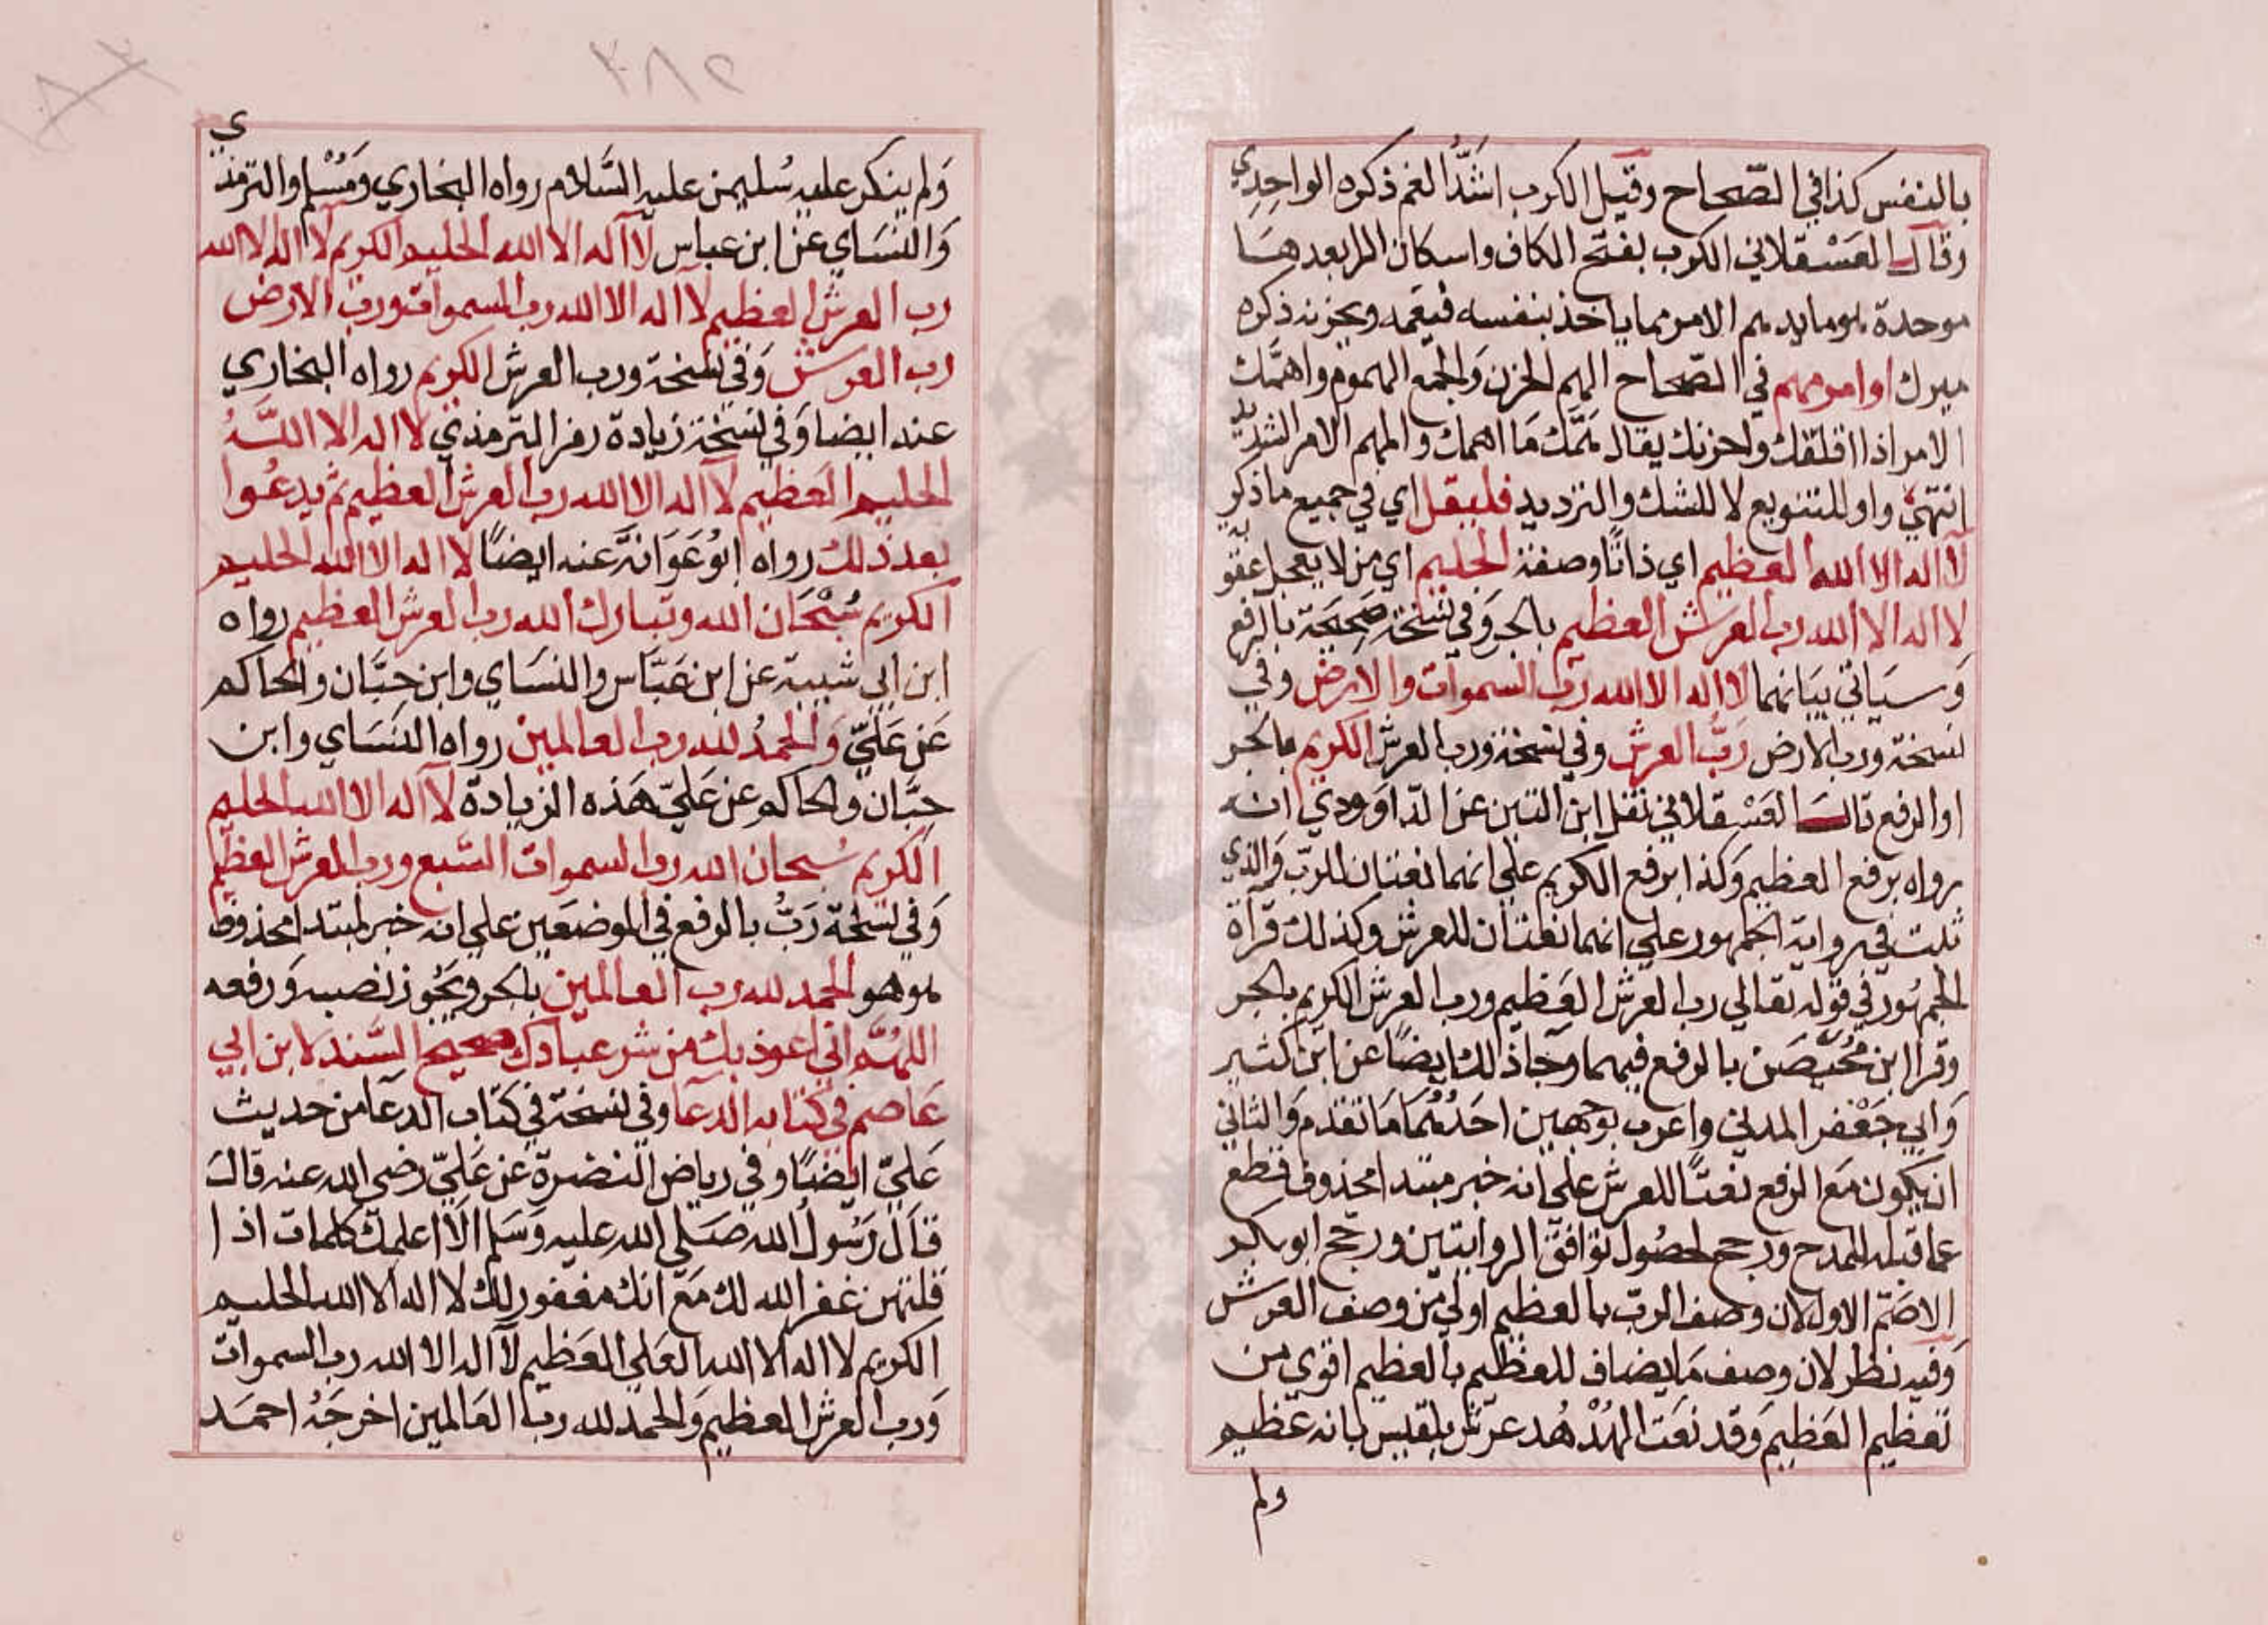 بالنفس كذا في الصّحاح وقيل الكرب اشَدُّ الغم ذكره الواحِدِي
وقال العَسْقلاني الكرب بفتح الكاف واسكان الرا بعدهَا
موحدة هو ما يدهم الامر مما ياخذ بنفسه فيغمه ويحزنه ذكره
ميرك او امر مهم في الصّحاح الهم الحزن وَالجمع الهموم واهمَّك
الامر اذا اقلقك واحزنك يقال هَمَّك مَا اهمك والمهم الامر الشديد
انتهيَ واو للتنويع لا للشك والترديد فليقل اي في جميع ما ذكر
لآ اله الا الله العظيم اي ذاتًا وصفة الحليم اي من لا يعجل عقوبة
لا اله الا الله رب العرش العظيم بالجر وَفي نسْخة صَحِيحَة بالرفع
وَسيَاتي بيَانهما لا اله الا الله رب السموات والارض وفي
نسخة ورب الارض رَبُّ العرش وفي نسخة ورب العرش الكريم بالجر
او الرفع قال العَسْقلاني نقل ابن التين عن الدّاوَودي انه
رواه برفع العظيم وَكذا برفع الكريم علي انهما نعتان للربّ وَالذي
ثبت في رواية الجمهور علي انهما نعتان للعرش وكذلك قرآة
الجمهُور في قوله تعالي رب العرش العَظيم ورب العرش الكريم بالجر
وقرا ابن مُحَيصَن بالرفع فيهما وجَآ ذلك ايضًا عن ابن كثير
وَابي جَعْفر المدني واعرب بوجهين احَدُهُمَا مَا تقدم وَالثاني
ان يكون مَع الرفع نعتًا للعرش علي انه خبر مبتدا محذوف قطع
عما قبله للمدح ورجح لحصُول توافق الروايتين ورجح ابو بكر
الاصَمّ الاول لان وصف الربّ بالعظيم اولي من وصف العرش
وَفيه نظر لان وصف مَا يضاف للعظيم بالعظيم اقوي من
تعظيم العَظيم وَقد نعَت الهُدْهُد عرش بلقيس بانه عَظيم
ولم
٢٨٢
وَلم ينكر عليه سُليمن عليه السَّلام رواه البخاري وَمُسْلم والترمذي
وَالنسَاي عن ابن عباس لآ اله الا الله الحليم الكريم لآ اله الا الله
رب العرش العظيم لآ اله الا الله رب السموات ورب الارض
رب العرش وَفي نسخة ورب العرش الكريم رواه البخاري
عنه ايضا وَفي نسْخة زيادة رمز الترمذي لا اله الا اللَّهُ
الحليم العَظيم لآ اله الا الله رب العرش العظيم ثم يدعُوا
بعد ذلك رواه ابُو عَوَانَة عنه ايضًا لا اله الا الله الحليم
الكريم سُبْحَان الله وتبارك الله رب العرش العظيم رواه
ابن ابي شيبة عن ابن عَبَّاس والنسَاي وابن حِبَّان والحَاكم
عَن عَليّ وَالحمدُ لله رب العالمين رواه النسَاي وابن
حِبَّان والحاكم عن عَليّ هَذه الزيادة لآ اله الا الله الحليم
الكريم سُبحان الله رب السموات السَّبع ورب العرش العظيم
وَفي نسْخة رَبُّ بالرفع في الموضعَين علي انه خبر لمبتدا محذوف
هو هو الحمد لله رب العالمين بالجر وَيجُوز نصبه وَرفعه
اللهُمَّ اني اعوذ بك من شر عبادك صحيح السَّند لابن ابي
عَاصم في كتابه الدعآ وفي نسخة في كتاب الدعَآ من حديث
عَليّ ايضًا وفي رياض النضرة عن عَليّ رضي الله عنه قال
قال رَسُول الله صَلي الله عليه وَسَلم الَا اعلمك كلمات اذا
قلتهن غفر الله لك مَعَ انك مغفور لك لا اله الا الله الحليم
الكريم لا اله الا الله العَلي العَظيم لآ اله الا الله رب السموات
وَرب العرش العظيم وَالحمد لله رب العَالمين اخرجَهُ احمَد